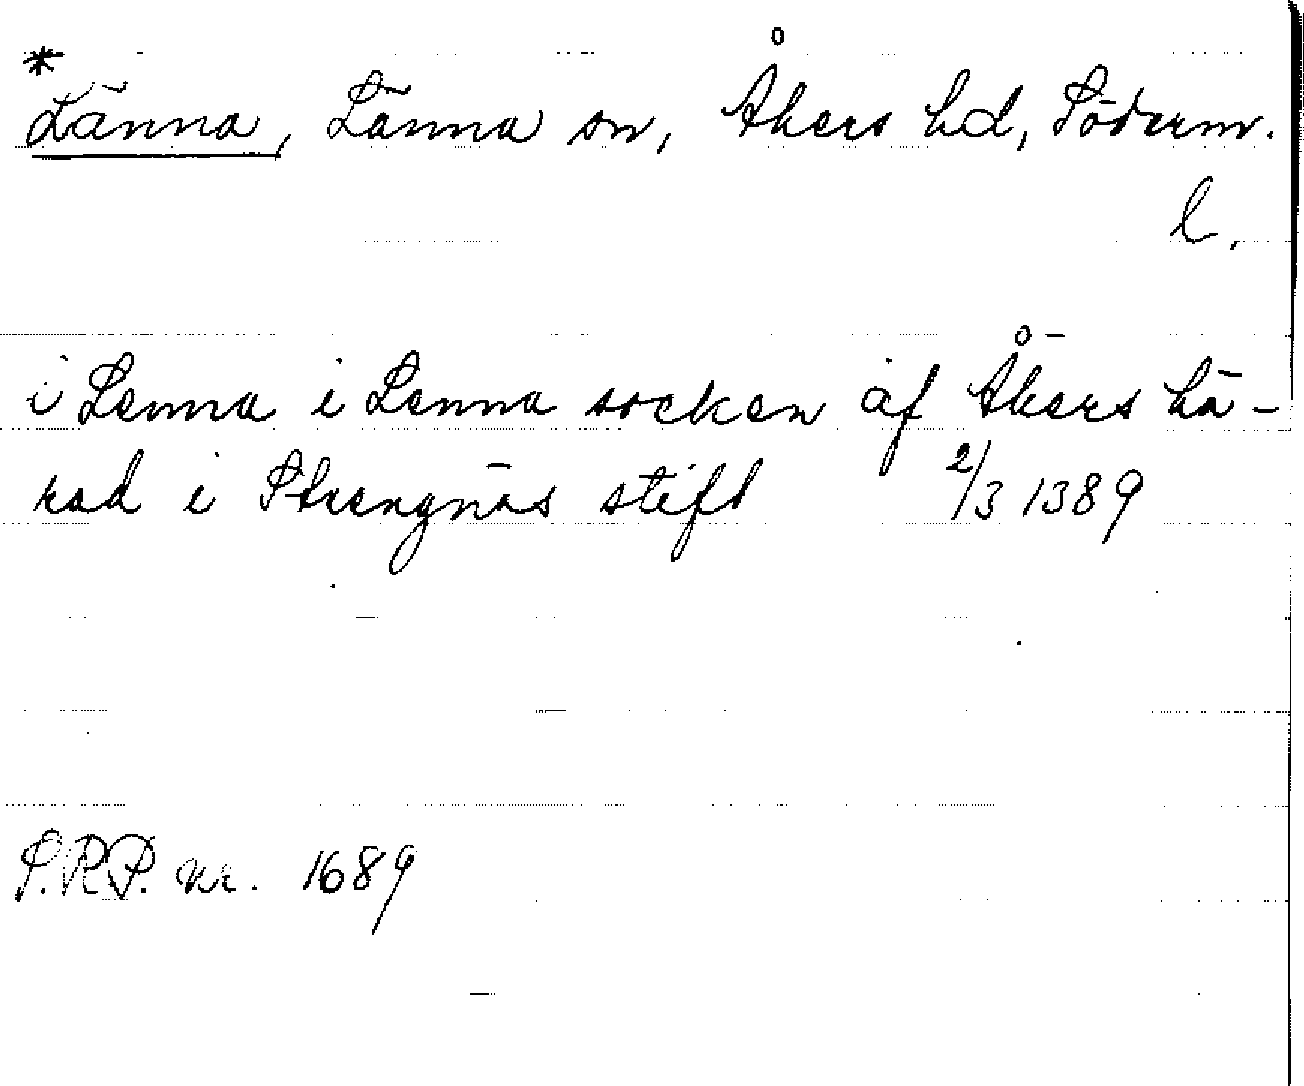 *
Länna, Länna sn, Åkers hd, Söderm.
l.
i Lenna i Lenna socken af Åkers hä-
rad i Strengnäs stift 2/3 1389
S.R.P. nr. 1689